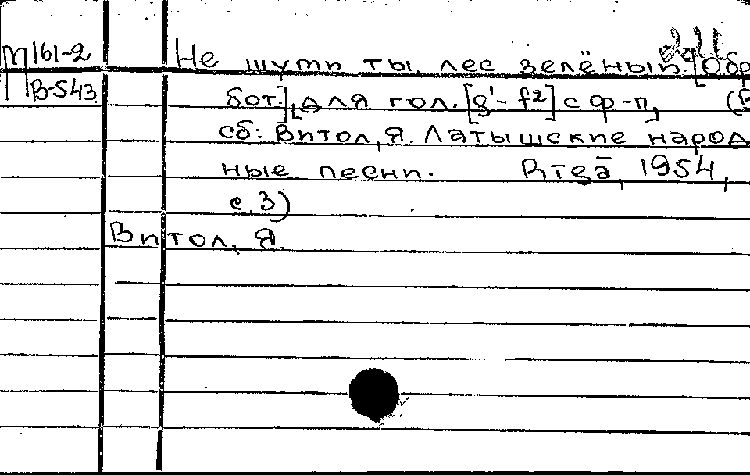 М161-2 Не шуми ты, лес зелёный. [Обр
В-543 бот.], для гол. [g¹- f²] с ф-п,
сб: Витол, Я. Латышские народ
ные песни. Rīgā, 1954,
с. 3)
Витол, Я.